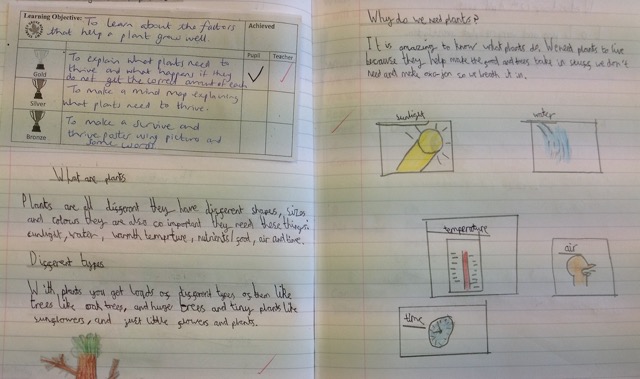 Learning Objective: To learn about the factors
that help a plant grow well.
Achieved
Pupil
Teacher
Gold
To explain what plants need to
thrive and what happens if they
do not get the correct amount of each
Silver
To make a mind map explaining
what plants need to thrive.
Bronze
To make a survive and
thrive poster using picture and
some words
What are plants
Plants are all different they have different shapes, sizes
and colours they are also so important they need these things:
sunlight, water, warmth temperture, nutrients/food, air and time.
Different types
With plants you get loads of different types of them like
trees like oak trees, and huge trees and tiny plants like
sunflowers, and just little flowers and plants.
Why do we need plants?
It is amazing to know what plants do. We need plants to live
because they help make the food and trees take in we don't
need and make so we breath it in.
sunlight
water
temperature
air
time